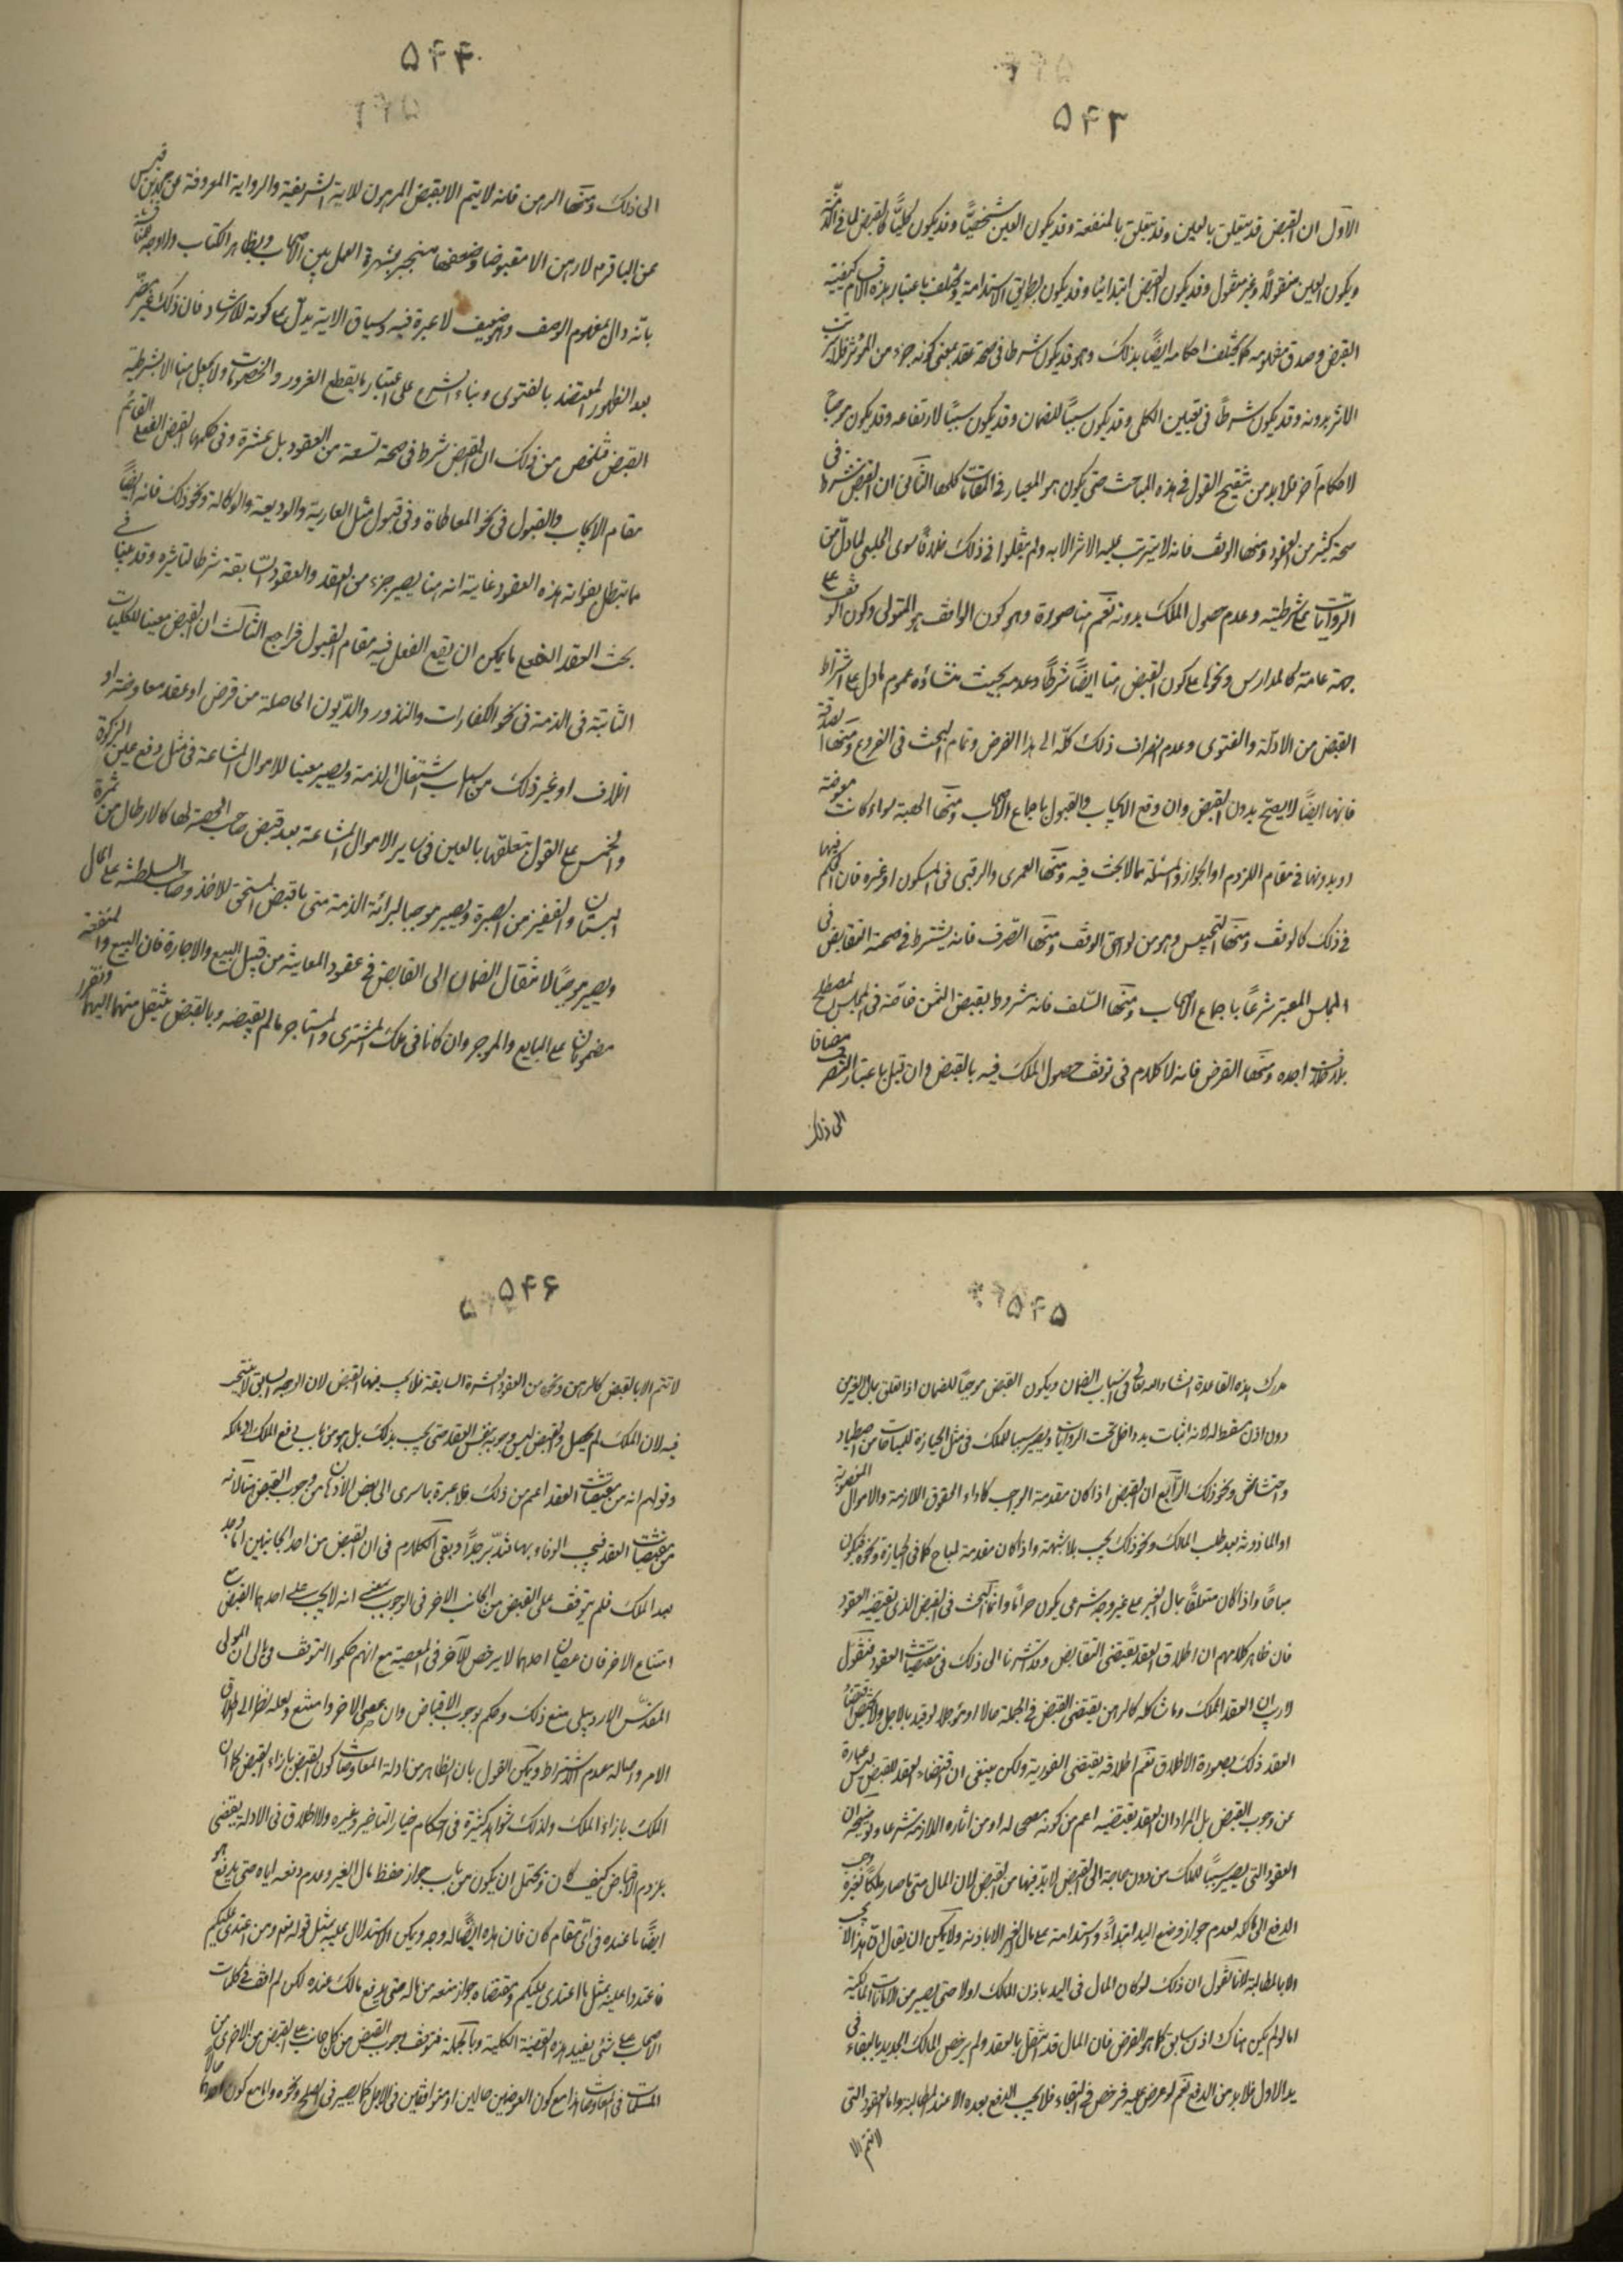 ۵۴۳
الاول ان القبض قد يتعلق بالعين وقد يتعلق بالمنفعة وقد يكون العين شخصيًّا وقد يكون كليًّا كالقبض لما في الذمة
ويكون العين منقولًا وغير منقول وقد يكون القبض ابتدائيا وقد يكون بطريق الاستدامة ويختلف باعتبار هذه الاقسام كيفية
القبض وصدق مفهومه كما يختلف احكامه ايضًا بذلك وهو قد يكون شرطا في صحة عقد بمعنى كونه جزء من المؤثر فلا يترتب
الاثر بدونه وقد يكون شرطًا في تعيين الكلي وقد يكون سببًا للضمان وقد يكون سببًا لارتفاعه وقد يكون موجبًا
لاحكام آخر فلا بد من تنقيح القول في هذه المباحث حتى يكون هو المعيار في المقامات كلها الثاني ان القبض شرط في
صحة كثير من العقود ومنها الوقف فانه لا يترتب عليه الاثر الا به ولم ينقلوا في ذلك خلافًا سوى الحلبي لما دلّ من
الروايات على شرطيته وعدم حصول الملك بدونه نعم هنا صورة وهو كون الواقف هو المتولى وكون الوقف على
جهة عامة كالمدارس ونحوها على كون القبض هنا ايضًا شرطًا وعدمه بحيث منشاؤه عموم ما دل على اشتراط
القبض من الادلة والفتوى وعدم انصراف ذلك كلّه الى هذا الفرض وتمام البحث في الفروع ومنها الصدقة
فانها ايضًا لا يصحّ بدون القبض وان وقع الايجاب والقبول باجماع الاصحاب ومنها الهبة سواء كانت معوضة
او بدونها في مقام اللزوم او الجواز والمسئلة مما لا بحث فيه ومنها العمرى والرقبى في المسكون او غيره فان الحكم فيها
في ذلك كالوقف ومنها التحبيس وهو من لواحق الوقف ومنها الصرف فانه يشترط في صحته التقابض في
المجلس المعتبر شرعًا باجماع الاصحاب ومنها السّلف فانه مشروط بقبض الثمن خاصّة في المجلس المصطلح
بلا خلاف اجده ومنها القرض فانه لا كلام في توقف حصول الملك فيه بالقبض وان قيل باعتبار التصرف مضافا
الى ذلك
۵۴۴
الى ذلك ومنها الرهن فانه لا يتم الا بقبض المرهون للاية الشريفة والرواية المعروفة عن محمد بن قيس
عن الباقر م لا رهن الا مقبوضا وضعفها منجبر بشهرة العمل بين الاصحاب وبظاهر الكتاب والوجه المناقشة
بانّه دال بمفهوم الوصف وهو ضعيف لا عبرة فيه وسياق الاية يدل على كونه للارشاد فان ذلك غير مضر
بعد الظهور المعتضد بالفتوى وبناء الشرع على اعتبار ما يقطع الغرور والخصومات ولا يحصل هنا الا بشرطية
القبض فتلخص من ذلك ان القبض شرط في صحة تسعة من العقود بل عشرة وفي حكمها القبض الفعلي القائم
مقام الايجاب والقبول في نحو المعاطاة وفي قبول مثل العارية والوديعة والوكالة ونحو ذلك فانه ايضًا
ما تبطل بفواته هذه العقود غايته انه هنا يصير جزء من العقد والعقود السّابقة شرطا لتاثيره وقد مبنا في
بحث العقد الفعلي ما يمكن ان يقع الفعل فيه مقام القبول فراجع الثالث ان القبض معينا للكليات
الثابتة في الذمة في نحو الكفارات والنذور والدّيون الحاصلة من قرض او عقد معاوضة او
اتلاف او غير ذلك من اسباب اشتغال الذمة ويصير معينا للاموال المشاعة في مثل دفع عين الزكوة
والخمس على القول بتعلقها بالعين في ساير الاموال المشاعة بعد قبض صاحب الحصة لها كالارطال من ثمرة
البستان والقفيز من الصبرة ويصير موجبا لبرائة الذمة متى ما قبض المستحق للاخذ وصاحب السلطنة على المال
ويصير موجبًا لانتقال الضمان الى القابض في عقود المعاينة من قبيل البيع والاجارة فان البيع والمنفعة
مضمونان على البايع والموجر وان كانا في ملك المشترى والمستاجر ما لم يقبضه وبالقبض ينتقل منهما اليهما وتقرر
۵۴۵
مدرك هذه القاعدة انشاء الله تعالى في اسباب الضمان ويكون القبض موجبًا للضمان اذا تعلق بمال الغير من
دون اذن مسقط له لانه اثبات يد داخل تحت الروايات ويصير سببا للملك في مثل الحيازة للمباحات من اصطياد
واحتشاش ونحو ذلك الرّابع ان القبض اذا كان مقدمة الواجب كاداء الحقوق اللازمة والاموال المغصوبة
او الماذونة بعد طلب المالك ونحو ذلك يجب بلا شبهة واذا كان مقدمة لمباح كما في الحيازة ونحوه فيكون
مباحًا واذا كان متعلقًا بمال الغير على غير وجه شرعى يكون حرامًا وانما البحث في القبض الذي يقتضيه العقود
فان ظاهر كلامهم ان اطلاق العقد يقتضى التقابض وقد اشرنا الى ذلك في مقتضيات العقود فنقول
لا ريب ان العقد المملك وما شاكله كالرهن يقتضى القبض في الجملة حالا او مؤجلا لو قيد بالاجل ولا يختص اقتضاء
العقد ذلك بصورة الاطلاق نعم اطلاقه يقتضى الفورية ولكن ينبغى ان اقتضاء العقد للقبض ليس عبارة
عن وجوب القبض بل المراد ان العقد يقتضيه اعم من كونه مصححا له او من اثاره اللازمة شرعا وتوضيحه ان
العقود التي يصير سببًا للملك من دون حاجة الى القبض لا بد فيها من القبض لان المال متى ما صار ملكًا لغيره وجب
الدفع الى مالكه لعدم جواز وضع اليد ابتداءً واستدامة على مال الغير الا باذنه ولا يمكن ان يقال ان هذا لا يجب
الا بالمطالبة لانا نقول ان ذلك لو كان المال في اليد باذن المالك اولا حتى يصير من الامانات المالكية
اما لو لم يكن هناك اذن سابق كما هو الفرض فان المال قد انتقل بالعقد ولم يرخص المالك الجديد بالبقاء في
يد الاول فلا بد من الدفع نعم لو عرض عليه فرخص في البقاء فلا يجب الدفع بعده الا عند المطالبة واما العقود التي
لا تتم الا
۵۴۶
لا تتم الا بالقبض كالرهن ونحوه من العقود العشرة السابقة فلا يجب فيها القبض لان الوجه السابق لا يتمشى
فيه لان الملك لم يحصل والقبض ليس وجوبه بنفس العقد حتى يجب بذلك بل هو من باب دفع الملك الى مالكه
وقولهم انه من مقتضيات العقد اعم من ذلك فلا عبرة بما سرى الى بعض الاذهان من وجوب القبض هنا لانه
من مقتضيات العقد فيجب الوفاء بها فتدبّر جدًّا وبقى الكلام في ان القبض من احد الجانبين اذا وجب
بعد الملك فلم يتوقف على القبض من الجانب الاخر في الوجوب بمعنى انه لا يجب على احدهما القبض مع
امتناع الاخر فان عصيان احدهما لا يرخص للآخر في المعصية مع انهم حكموا التوقف في بالى ان المولى
المقدّس الاردبيلى منع ذلك وحكم بوجوب الاقباض وان عصى الاخر وامتنع ولعله نظرا الى اطلاق
الامر واصالة عدم الاشتراط ويمكن القول بان الظاهر من ادلة المعاوضات كون القبض بازاء القبض كما ان
الملك بازاء الملك ولذلك شواهد كثيرة في احكام خيار التاخير وغيره والاطلاق في الادلة يقتضى
بلزوم الاقباض كيف كان ويحتمل ان يكون من باب جواز حفظ مال الغير وعدم دفعه اياه حتى يدفع هو
ايضًا ما عنده في اىّ مقام كان فان هذه ايضًا له وجه ويمكن الاستدلال عليه بمثل قوله تعه ومن اعتدى عليكم
فاعتدوا عليه بمثل ما اعتدى عليكم ومقتضاه جواز منعه من ماله حتى يدفع مالك عنده لكن لم اقف في كلمات
الاصحاب على شئ يفيد هذه القضية الكلية وبالجملة فتوقف وجوب القبض من كل جانب على القبض من الاخرى من
المسلمات في المعاوضات هذا مع كون العوضين حالين او متوافقين في الاجل كما يصير في الصلح ونحوه واما مع كون احدهما حالًا